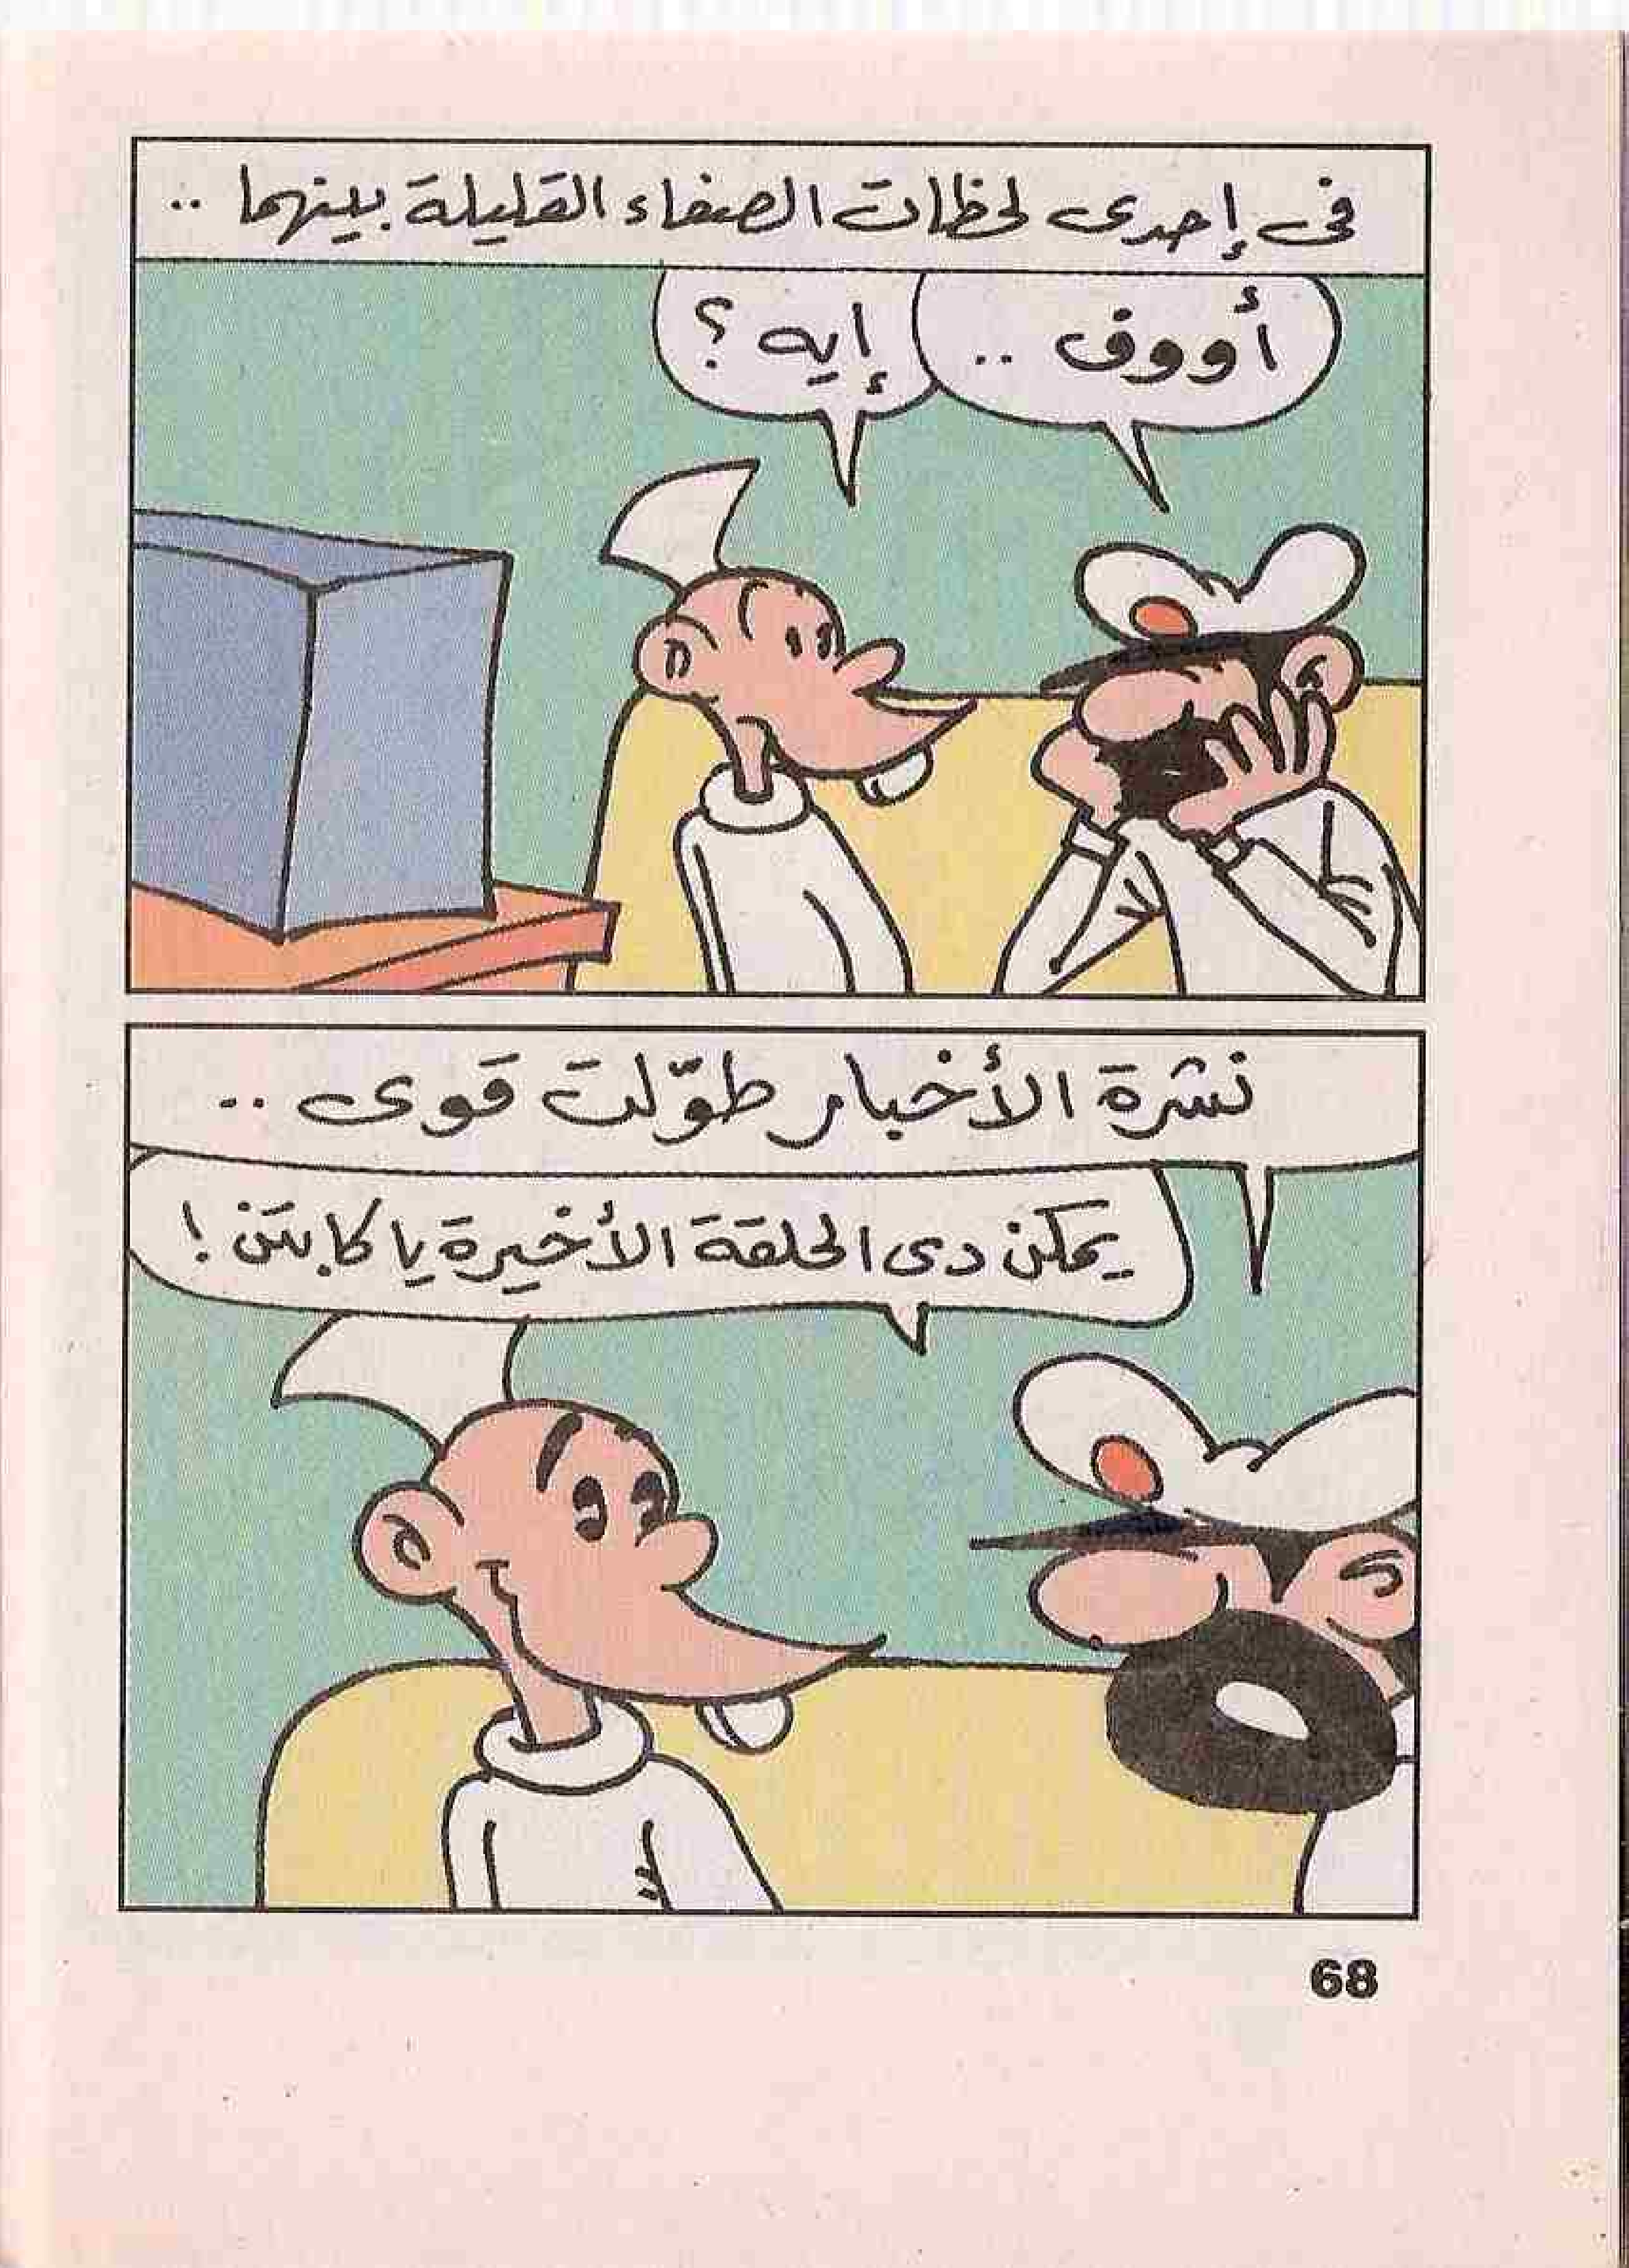 فى إحدى لحظات الصفاء القليلة بينهما ..
أووف ..
إيه ؟
نشرة الأخبار طوّلت قوى ..
يمكن دى الحلقة الأخيرة يا كابتن !
68